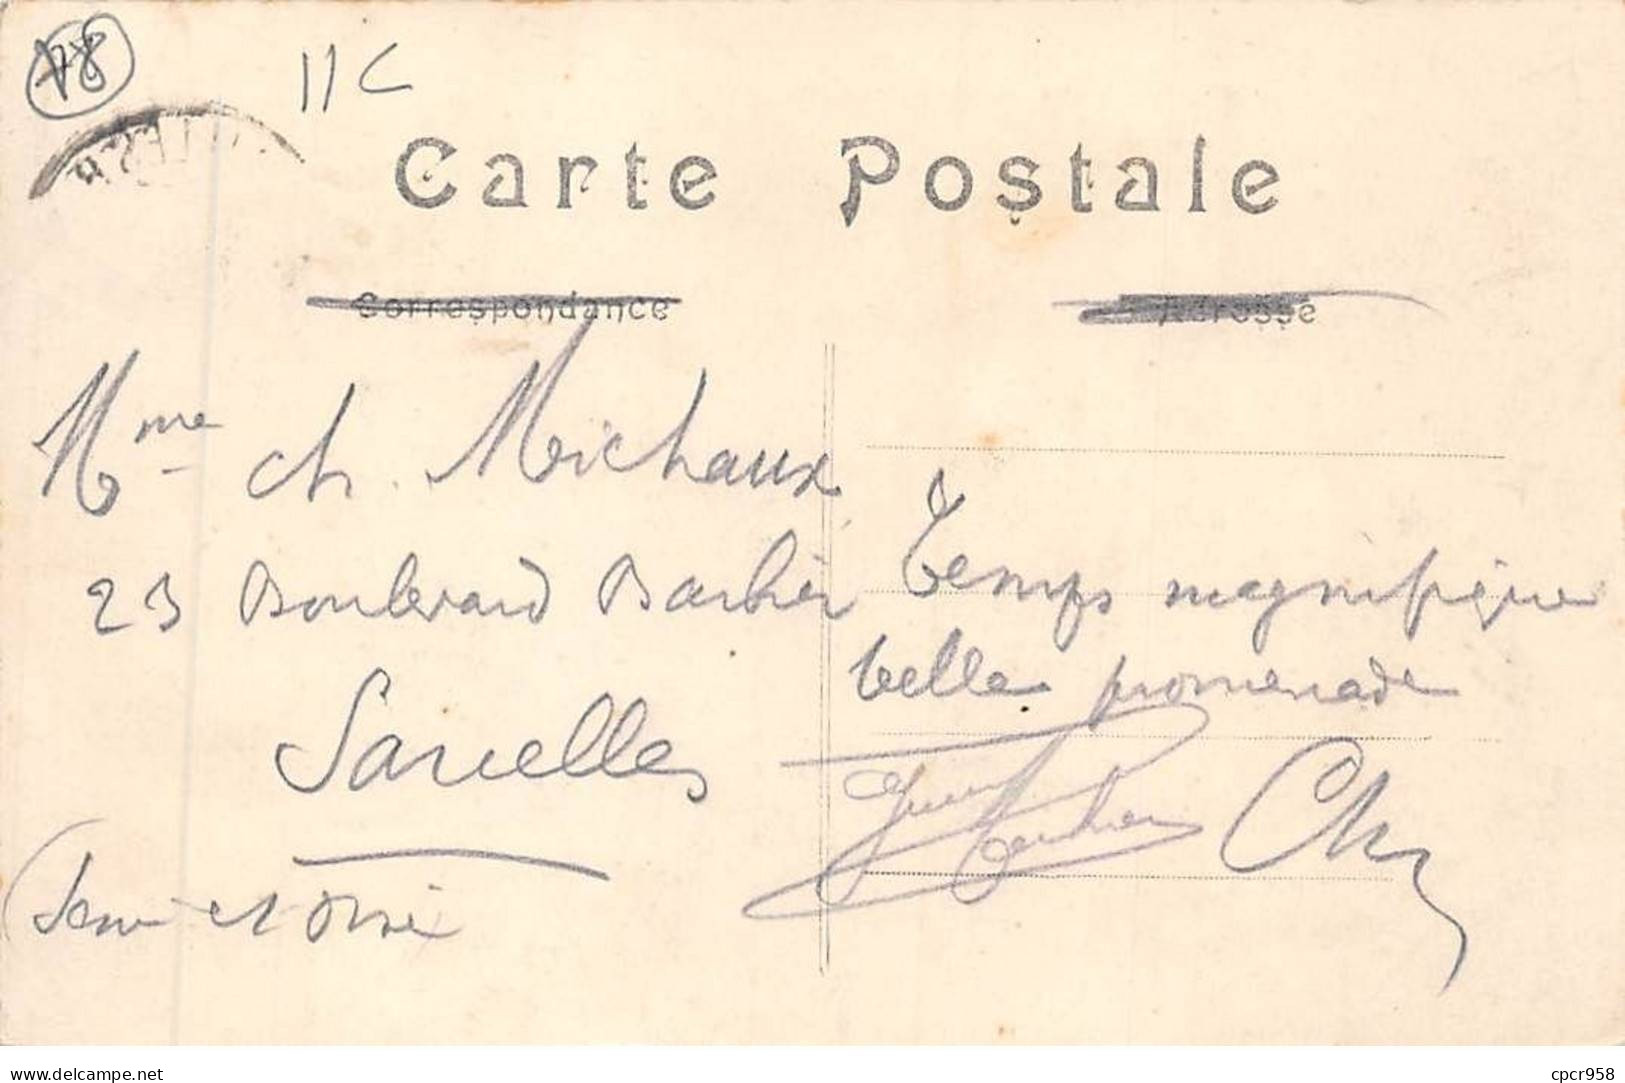 78
11 C
Carte Postale
Correspondance
Adresse
Mme Ch. Michaux
23 Boulevard Barbier
Sarcelles
(Seine et Oise
Temps magnifique
belle promenade
Ch
www.delcampe.net
cpcr958